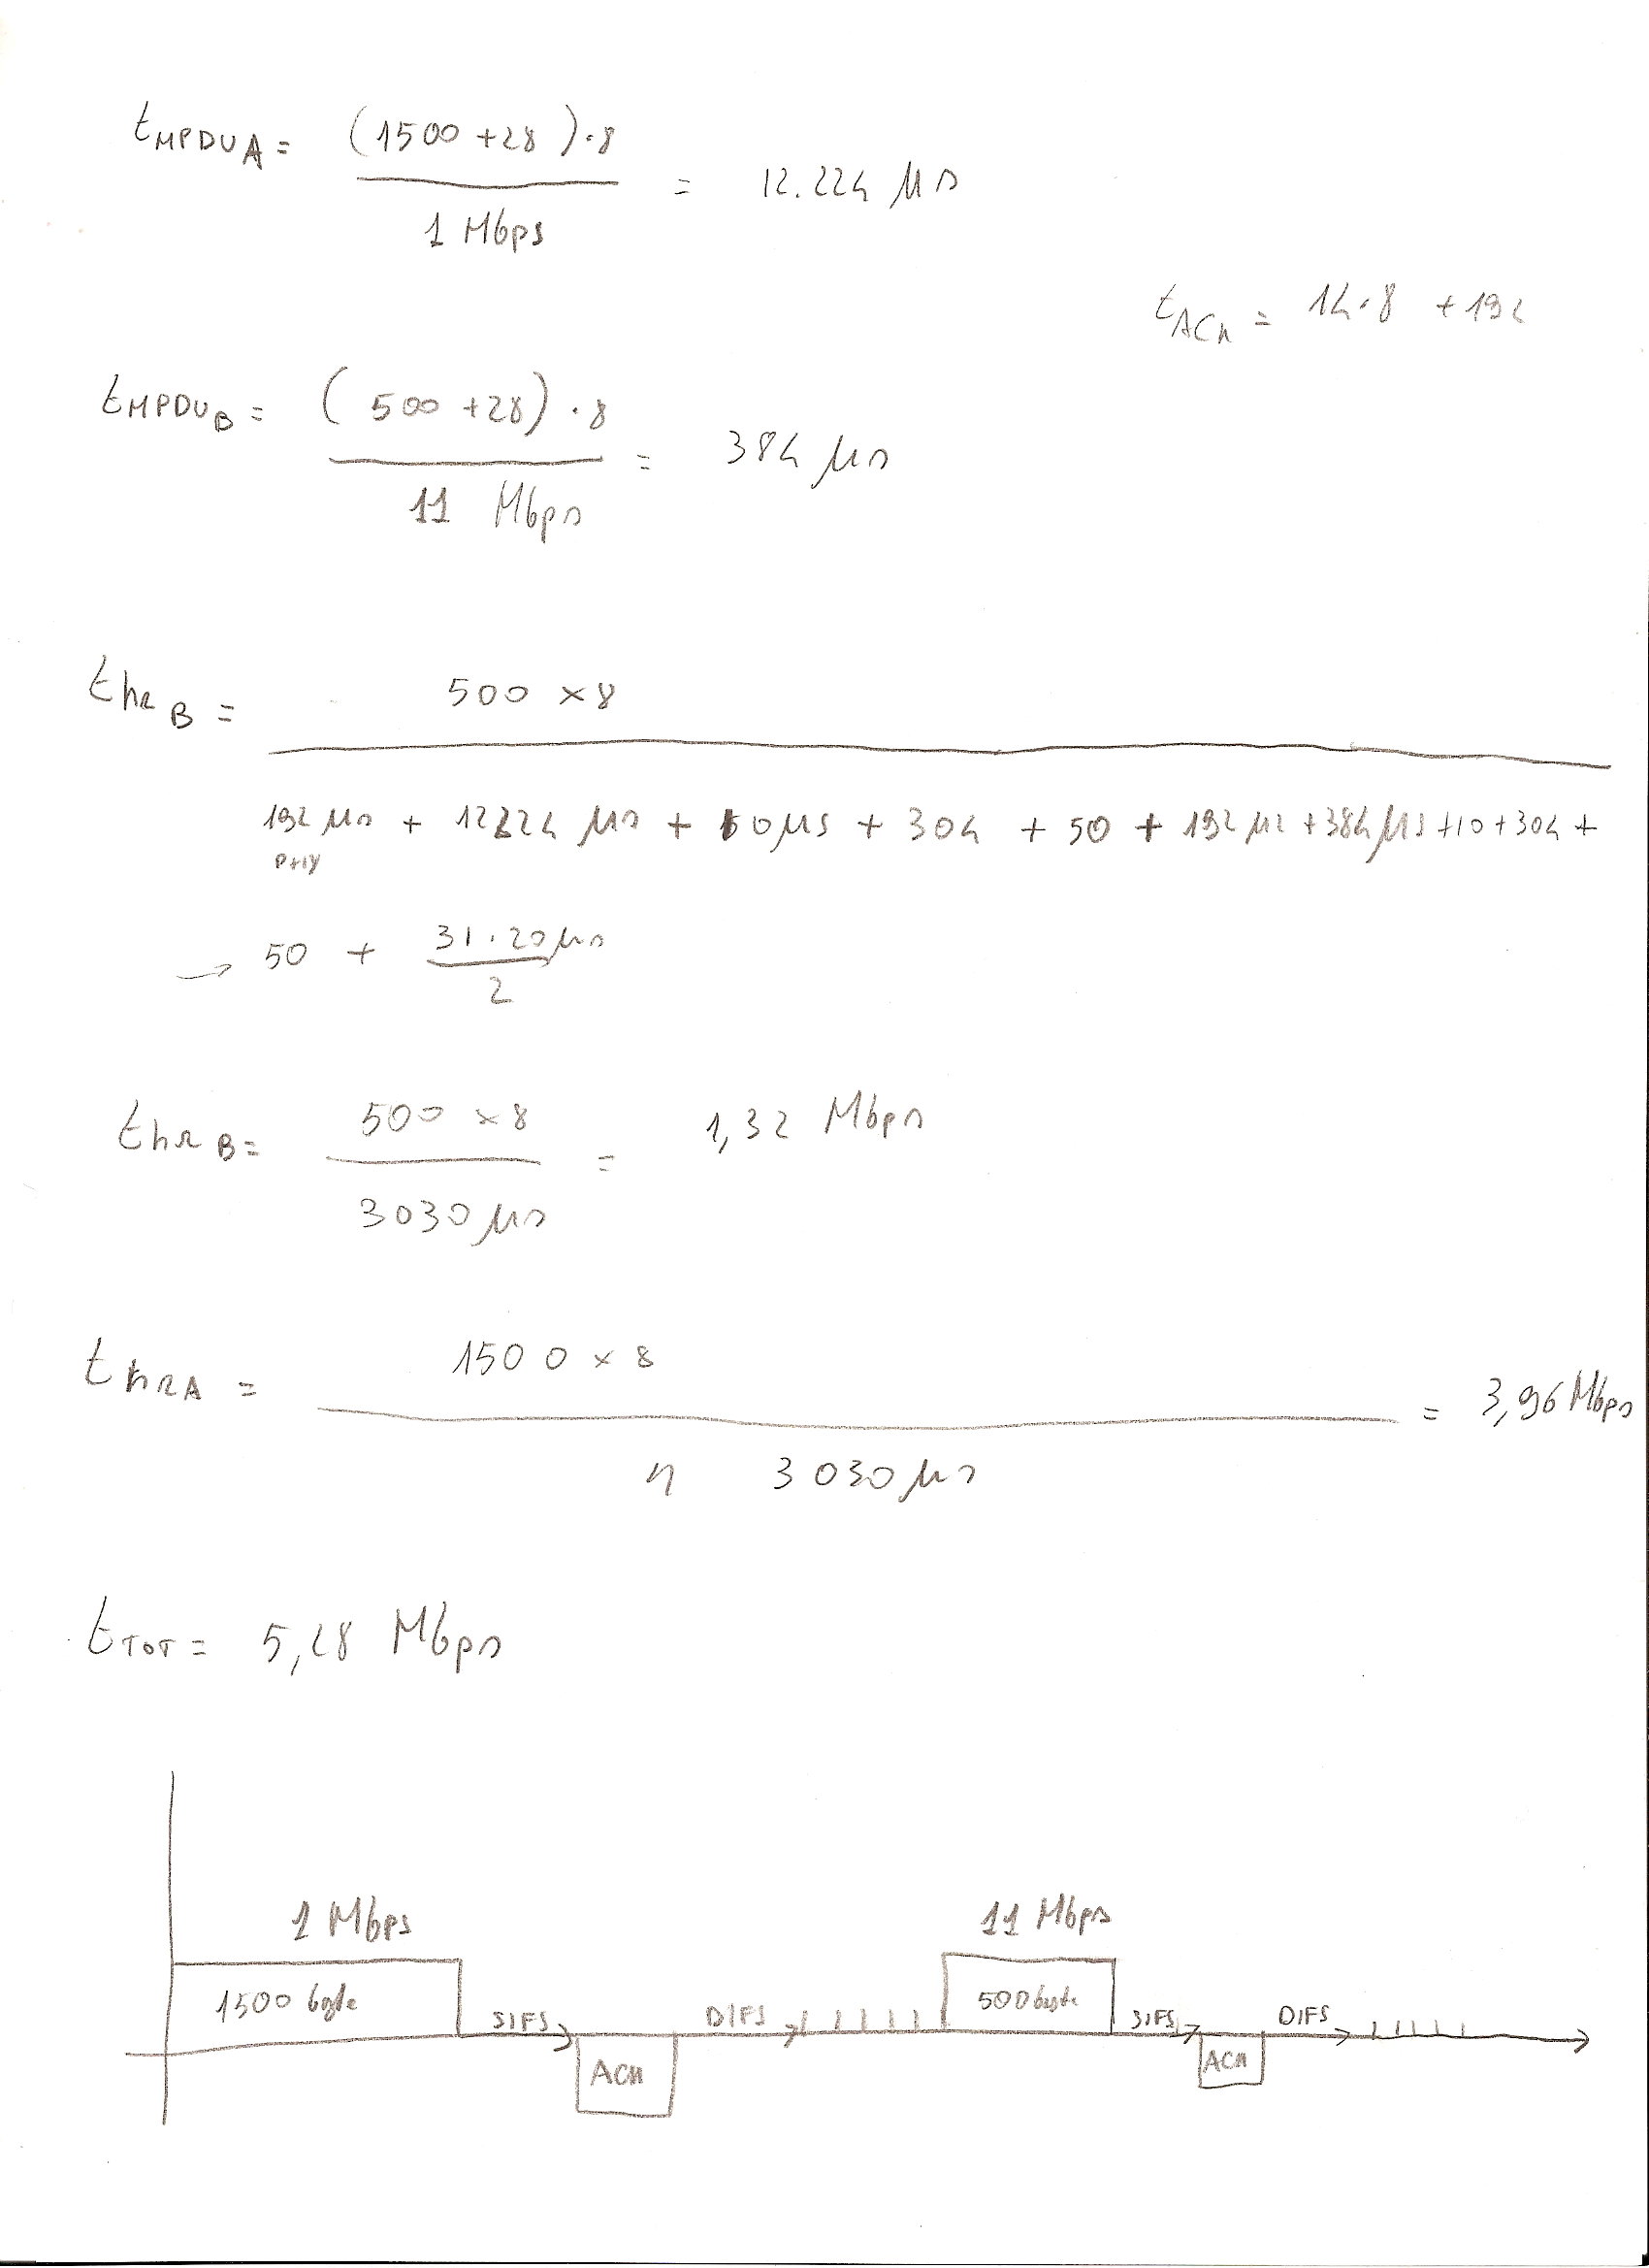 t_MPDU A = (1500 + 28) · 8 / 1 Mbps = 12.224 μs
t_ACK = 14·8 + 192
t_MPDU B = (500 + 28) · 8 / 11 Mbps = 384 μs
thr B = 500 × 8
192 μs + 12224 μs + 10 μs + 304 + 50 + 192 μs + 384 μs + 10 + 304 +
→ 50 + 31 · 20 μs / 2
thr B = 500 × 8 / 3030 μs = 1,32 Mbps
thr A = 1500 × 8 / 3030 μs = 3,96 Mbps
t_TOT = 5,28 Mbps
1 Mbps 11 Mbps
1500 byte SIFS ACK DIFS 500 byte SIFS ACK DIFS